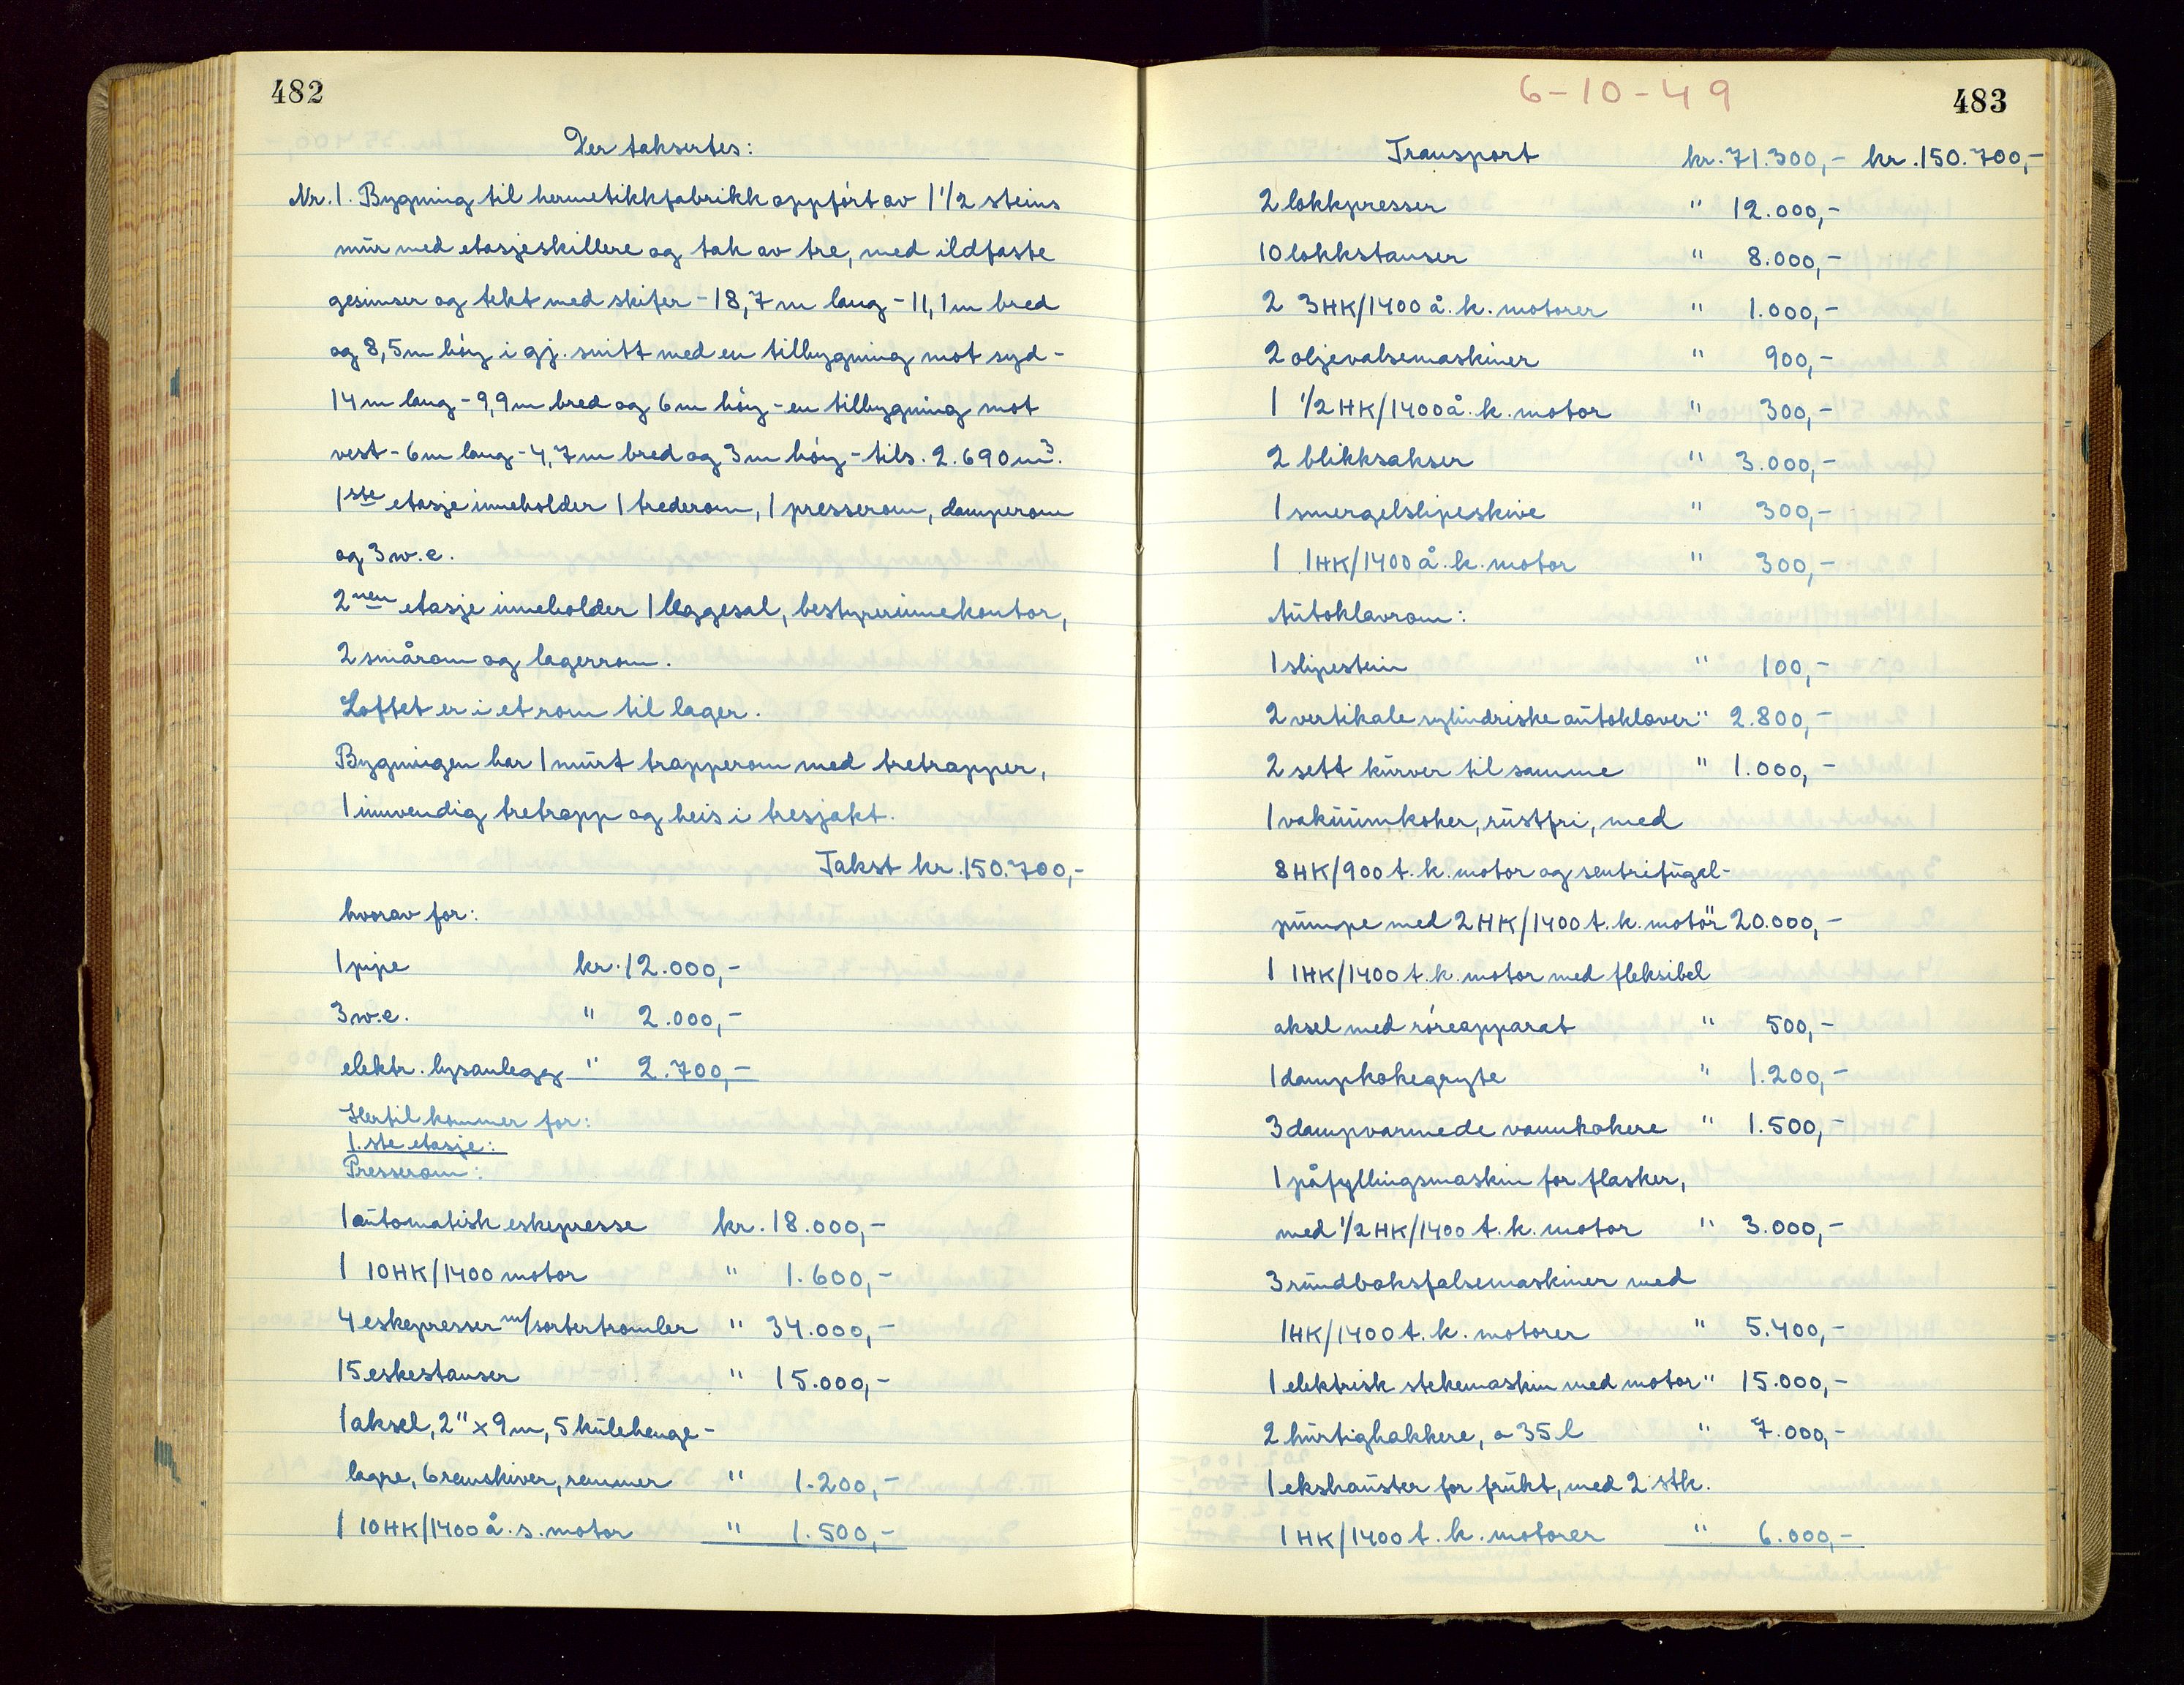 482
Der taksertes:
Nr. 1. Bygning til hermetikkfabrikk oppført av 1 1/2 steins
mur med etasjeskillere og tak av tre, med ildfaste
gesimser og tekt med skifer - 18,7 m lang - 11,1 m bred
og 8,5 m høy i gj. snitt med en tilbygning mot syd -
14 m lang - 9,9 m bred og 6 m høy - en tilbygning mot
vest - 6 m lang - 4,7 m bred og 3 m høy - tils. 2.690 m³.
1ste etasje inneholder 1 trederom, 1 presserom, damperom
og 3 w.c.
2nen etasje inneholder 1 leggesal, bestyrerinnekontor,
2 smårom og lagerrom.
Loftet er i et rom til lager.
Bygningen har 1 murt trapperom med tretrapper,
1 innvendig tretrapp og heis i tresjakt.
Takst kr. 150.700,-
hvorav for:
1 pipe kr. 12.000,-
3 w.c. " 2.000,-
elektr. lysanlegg " 2.700,-
Hertil kommer for:
1.ste etasje:
Presserom:
1 automatisk eskepresse kr. 18.000,-
1 10HK/1400 motor " 1.600,-
4 eskepresser m/sortertromler " 34.000,-
15 eskestanser " 15.000,-
1 aksel, 2" x 9 m, 5 kulehenge-
lagre, 6 remskiver, remmer " 1.200,-
1 10HK/1400 å.s. motor " 1.500,-
6-10-49
483
Transport kr. 71.300,- kr. 150.700,-
2 lokkpresser " 12.000,-
10 lokkstanser " 8.000,-
2 3HK/1400 å.k. motorer " 1.000,-
2 oljevalsemaskiner " 900,-
1 1/2 HK/1400 å.k. motor " 300,-
2 blikksakser " 3.000,-
1 smergelslipeskive " 300,-
1 1HK/1400 å.k. motor " 300,-
Autoklavrom:
1 slipestein " 100,-
2 vertikale sylindriske autoklaver " 2.800,-
2 sett kurver til samme " 1.000,-
1 vakuumkoker, rustfri, med
8HK/900 t.k. motor og sentrifugal-
pumpe med 2HK/1400 t.k. motor " 20.000,-
1 1HK/1400 t.k. motor med fleksibel
aksel med røreapparat " 500,-
1 dampkokegryte " 1.200,-
3 dampvarmede vannkokere " 1.500,-
1 påfyllingsmaskin for flasker,
med 1/2 HK/1400 t.k. motor " 3.000,-
3 rundboksfalsemaskiner med
1HK/1400 t.k. motorer " 5.400,-
1 elektrisk stekemaskin med motor " 15.000,-
2 hurtighakkere, a 35 l " 7.000,-
1 ekshauster for frukt, med 2 stk.
1HK/1400 t.k. motorer " 6.000,-